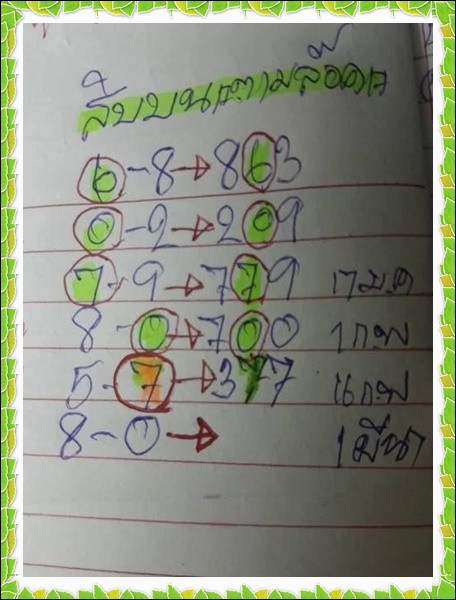 สิบบนตามล็อค
6-8→863
0-2→209
7-9→779 17มค
8-0→700 1กพ
5-7→377 16กพ
8-0→ 1มีนา